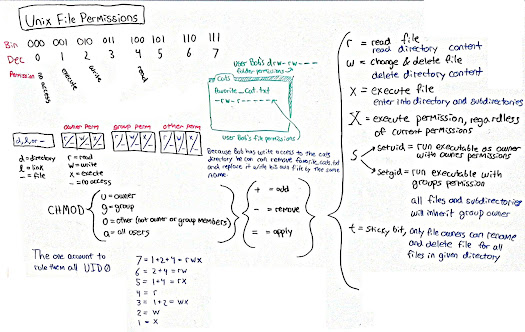 Unix File Permissions
Bin 000 001 010 011 100 101 110 111
Dec 0 1 2 3 4 5 6 7
Permission no access execute write read
User Bob's drw-rw---
folder permissions
Cats
favorite_cat.txt
-rw-r-----
User Bob's file permissions
Because Bob has write access to the cats
directory he can remove favorite_cats.txt
and replace it with his own file by the same
name.
owner perm group perm other perm
d, l, or - r/- w/- x/- r/- w/- x/- r/- w/- x/-
d = directory r = read
l = link w = write
- = file x = execute
- = no access
CHMOD
u = owner
g = group
o = other (not owner or group members)
a = all users
+ = add
- = remove
= = apply
The one account to
rule them all UID 0
7 = 1+2+4 = rwx
6 = 2+4 = rw
5 = 1+4 = rx
4 = r
3 = 1+2 = wx
2 = w
1 = x
r = read file
read directory content
w = change & delete file
delete directory content
x = execute file
enter into directory and subdirectories
X = execute permission, regardless
of current permissions
s
setuid = run executable as owner
with owner permissions
setgid = run executable with
groups permission
all files and subdirectories
will inherit group owner
t = sticky bit, only file owners can rename
and delete file for all
files in given directory